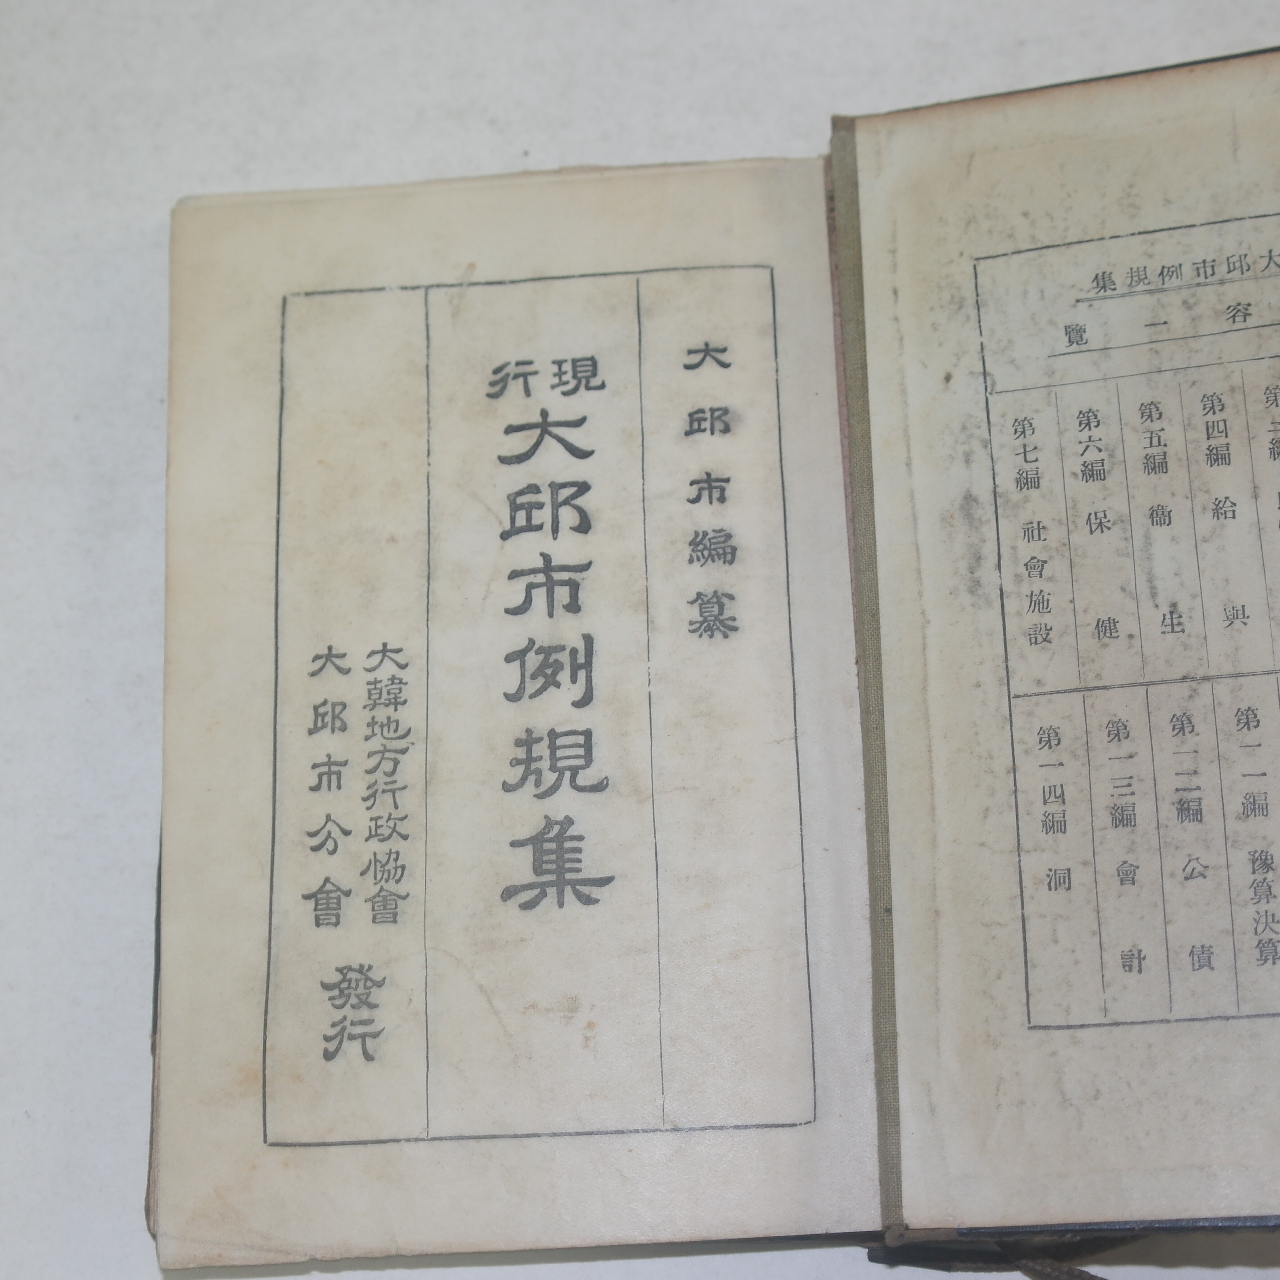 大邱市例規集
容一覽
第四編 給與
第五編 衞生
第六編 保健
第七編 社會施設
第一一編 豫算決算
第一二編 公債
第一三編 會計
第一四編 洞
大邱市編纂
現行
大邱市例規集
大韓地方行政協會
大邱市分會
發行